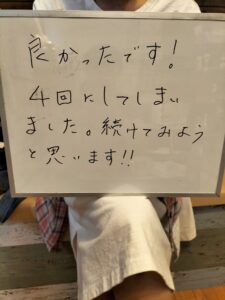 良かったです!
4回にしてしまい
ました。続けてみよう
と思います!!